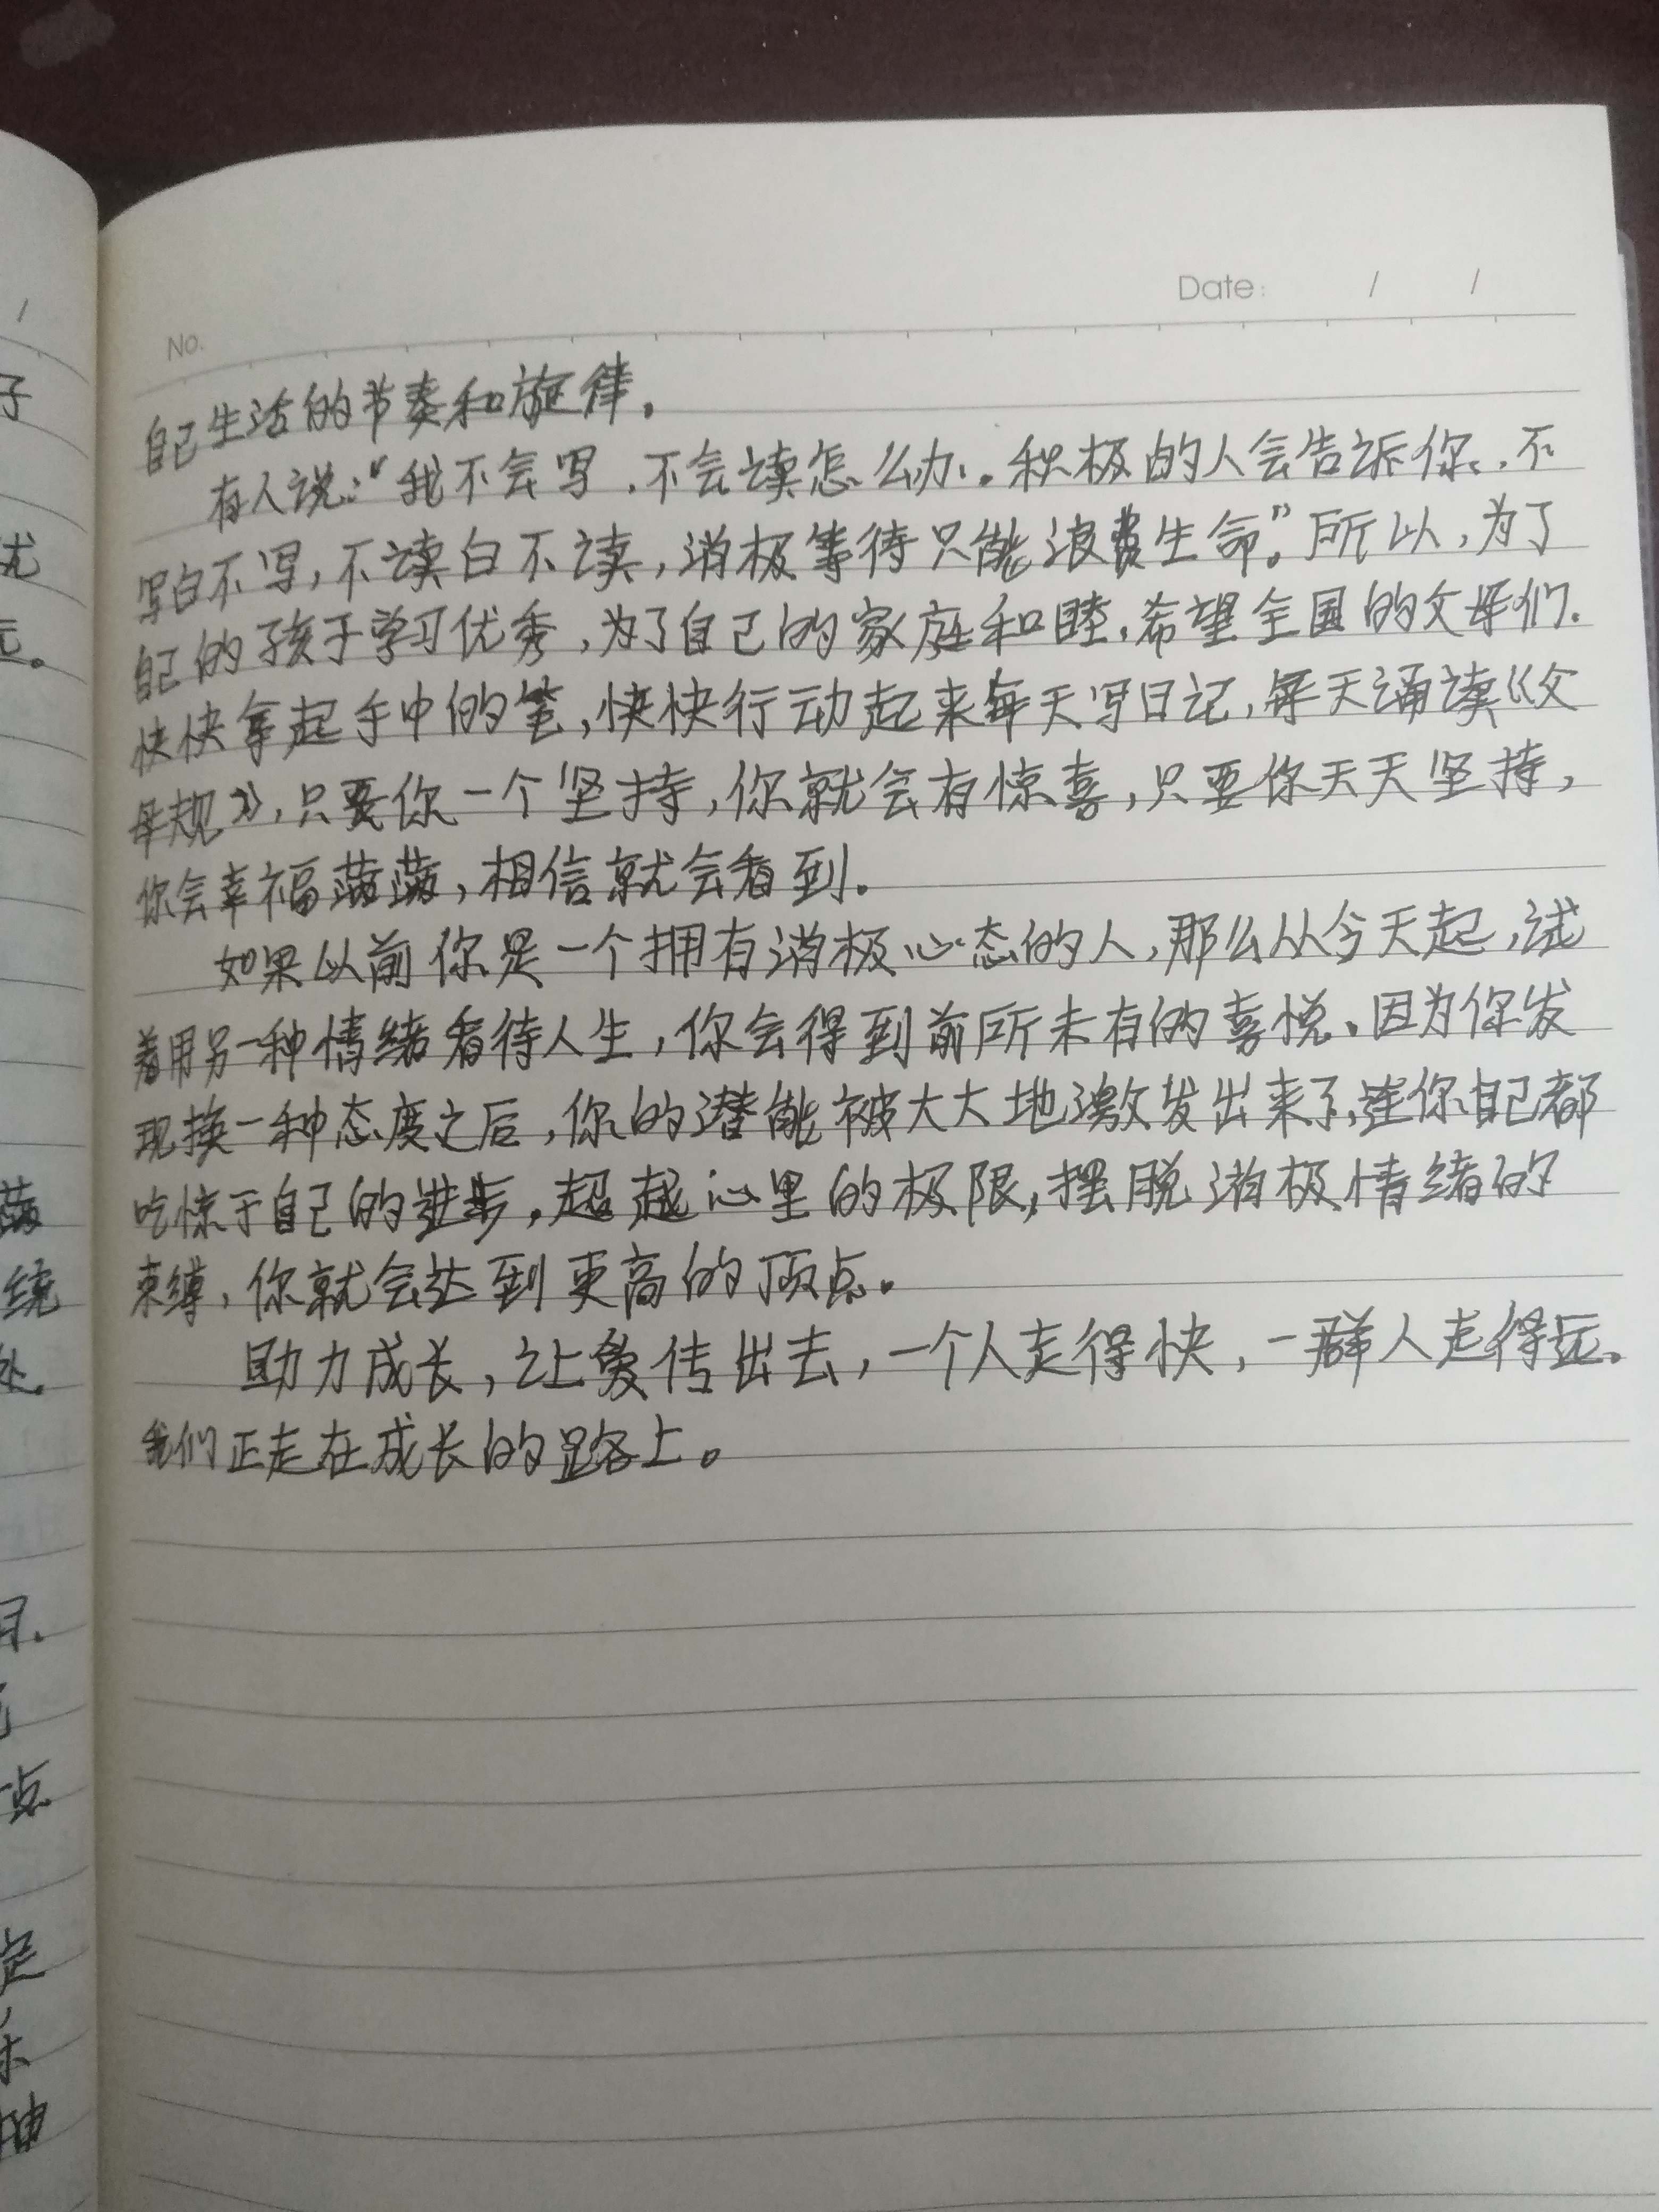 No.
Date: / /
自己生活的节奏和旋律。
有人说:“我不会写,不会读怎么办。积极的人会告诉你,不
写白不写,不读白不读,消极等待只能浪费生命。”所以,为了
自己的孩子学习优秀,为了自己的家庭和睦,希望全国的父母们.
快快拿起手中的笔,快快行动起来每天写日记,每天诵读《父
母规》,只要你一个坚持,你就会有惊喜,只要你天天坚持,
你会幸福满满,相信就会看到。
如果以前你是一个拥有消极心态的人,那么从今天起,试
着用另一种情绪看待人生,你会得到前所未有的喜悦。因为你发
现换一种态度之后,你的潜能被大大地激发出来了,连你自己都
吃惊于自己的进步。超越心里的极限,摆脱消极情绪的
束缚,你就会达到更高的顶点。
助力成长,让爱传出去,一个人走得快,一群人走得远。
我们正走在成长的路上。
子
尤
元。
满
绕
处。
习.
点
定
乐
抽